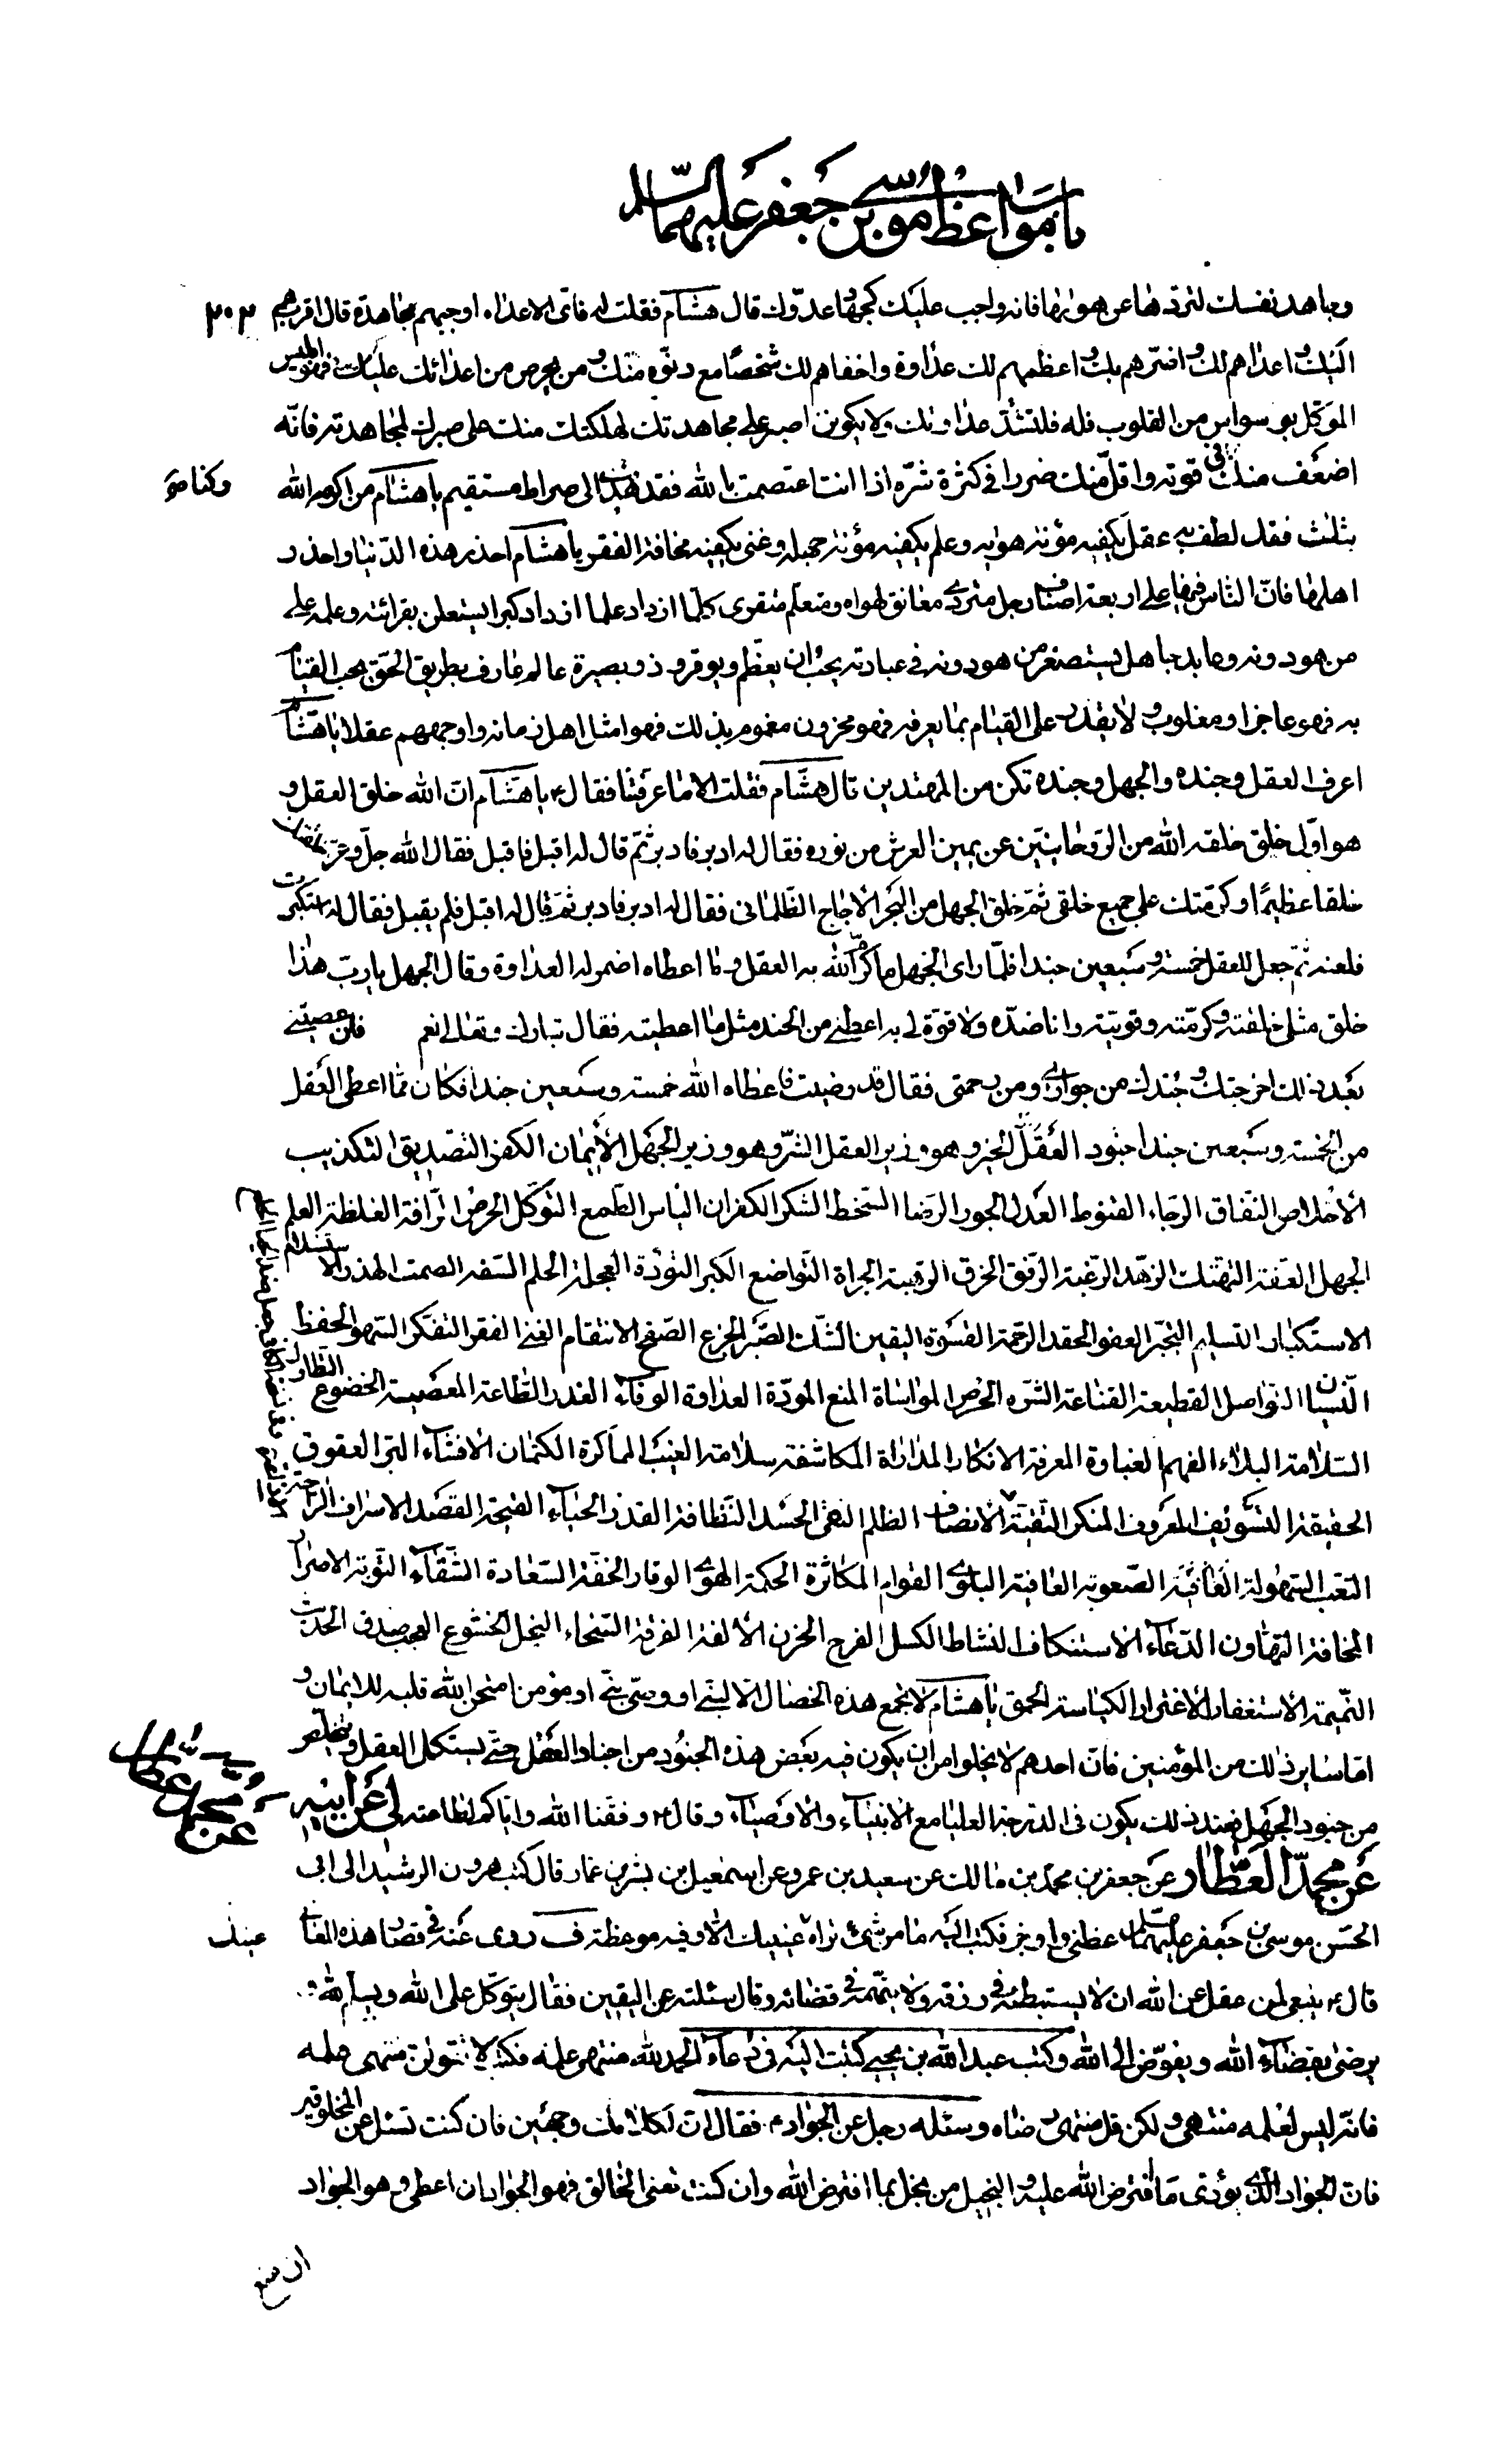 باب مواعظ موسى بن جعفر عليهما السلام
وجاهد نفسك لتردها عن هواها فانه واجب عليك كجهاد عدوك قال هشام فقلت له فاى الاعداء اوجبهم مجاهدة قال اقربهم ٢٠٣
اليك و اعداهم لك و اضرّهم بك و اعظمهم لك عداوة واخفاهم لك شخصًا مع دنوّه منك و من يحرص من اعدائك عليك فهو ابليس
الموكل بوسواس من القلوب فله فلتشتدّ عداوتك ولا يكونن اصبر على مجاهدتك لهلكتك منك على صبرك لمجاهدته فانّه
اضعف منك فى قوته واقل منك ضررا فى كثرة شرّه اذا انت اعتصمت بالله فقد هديت الى صراط مستقيم يا هشام من اكرمه الله
بثلث فقد لطف به عقل يكفيه مؤنة هواه وعلم يكفيه مؤنة جهله وغنى يكفيه مخافة الفقر يا هشام احذر هذه الدّنيا واحذر
اهلها فانّ الناس فيها على اربعة اصناف رجل متردى معانق لهواه ومتعلّم متقرى كلّما ازداد علما ازداد كبرا يستعلن بقرائته وعلمه على
من هو دونه وعابد جاهل يستصغر من هو دونه فى عبادته يحبّ ان يعظّم ويوقر و ذو بصيرة عالم عارف بطريق الحق يحب القيام
به فهو عاجز او مغلوب و لا يقدر على القيام بما يعرفه فهو محزون مغموم بذلك فهو امثل اهل زمانه واوجههم عقلا يا هشام
اعرف العقل وجنده والجهل وجنده تكن من المهتدين قال هشام فقلت لا ما عرفتنا فقال ع يا هشام انّ الله خلق العقل و
هو اوّل خلق خلقه الله من الروحانيين عن يمين العرش من نوره فقال له ادبر فادبر ثمّ قال له اقبل فاقبل فقال الله جلّ وعزّ خلقتك
خلقا عظيمًا وكرّمتك على جميع خلقى ثمّ خلق الجهل من البحر الاجاج الظّلمانى فقال له ادبر فادبر ثمّ قال له اقبل فلم يقبل فقال له استكبرت
فلعنه ثمّ جعل للعقل خمسة و سبعين جندا فلمّا راى الجهل ما كرّم الله به العقل و ما اعطاه اضمر له العداوة وقال الجهل يا ربّ هذا
خلق مثلى خلقته و كرّمته وقويّته وانا ضدّه ولا قوّة لى به اعطنى من الجند مثل ما اعطيته فقال تبارك وتعالى نعم فان عصيتنى
بعد ذلك اخرجتك و جندك من جوارى ومن رحمتى فقال قد رضيت فاعطاه الله خمسة وسبعين جندا فكان ممّا اعطى العقل
من الخمسة وسبعين جندا جنود العقل الخير و هو وزير العقل الشرّ و هو وزير الجهل الايمان الكفر التصديق التكذيب
الاخلاص النفاق الرجاء القنوط العدل الجور الرضا السّخط الشكر الكفران الياس الطّمع التوكل الحرص الرّافة الغلظة العلم
الجهل العفّة التهتك الزهد الرغبة الرفق الخرق الرهبة الجراة التواضع الكبر التؤدة العجلة الحلم السّفه الصمت الهذر الاستسلام
الاستكبار التسليم التجبّر العفو الحقد الرّحمة القسوة اليقين الشّك الصّبر الجزع الصّفح الانتقام الغنى الفقر التفكر السّهو الحفظ
النّسيان التواصل القطيعة القناعة الشره الحرص المواساة المنع المودّة العداوة الوفاء الغدر الطّاعة المعصية الخضوع التطاول
السّلامة البلاء الفهم الغباوة المعرفة الانكار المداراة المكاشفة سلامة الغيب المماكرة الكتمان الافشاء البرّ العقوق
الحقيقة التسويف المعروف المنكر التقيّة الانصاف الظلم النفى الحسد النّظافة القذر الحياء القحة القصد الاسراف الراحة
التعب السّهولة الصّعوبة العافية البلوى القوام المكاثرة الحكمة الهوى الوقار الخفّة السّعادة الشّقاء التّوبة الاصرار
المخافة التّهاون الدّعاء الاستنكاف النشاط الكسل الفرح الحزن الالفة الفرقة السّخاء البخل الخشوع العجب صدق الحديث
النّميمة الاستغفار الاغترار الكياسة الحمق يا هشام لا تجمع هذه الخصال الا لنبى او وصى نبى او مؤمن امتحن الله قلبه للايمان و
امّا ساير ذلك من المؤمنين فانّ احدهم لا يخلو من ان يكون فيه بعض هذه الجنود من اجناد العقل حتّى يستكمل العقل و يتخلّص
من جنود الجهل فعند ذلك يكون فى الدّرجة العليا مع الانبياء والاوصياء وقال ع وفقنا الله وايّاكم لطاعته لى عن ابيه
عن محمد العطار عن جعفر بن محمد بن مالك عن سعيد بن عمرو عن اسمعيل بن بشر بن عمار قال كتب هرون الرشيد الى ابى
الحسن موسى بن جعفر عليهما السلام عظنى و اوجز فكتب اليه ما من شئ تراه عينيك الّا و فيه موعظة ف روى عنه فى قصار هذه المعانى
قال ع ينبغى لمن عقل عن الله ان لا يستبطئه فى رزقه ولا يتّهمه فى قضائه وقال سئلته عن اليقين فقال يتوكّل على الله و يسلّم لله و
يرضى بقضاء الله ويفوّض الى الله وكتب عبد الله بن يحيى كتبت اليه فى دعاء الحمد لله منتهى علمه فكتب لا تقولن منتهى علمه
فانّه ليس لعلمه منتهى و لكن قل منتهى رضاه وسئله رجل عن الجواد ع فقال انّ لكلامك وجهين فان كنت تسئل عن المخلوقين
فانّ الجواد الّذى يؤدّى ما افترض الله عليه و البخيل من بخل بما افترض الله وان كنت تعنى الخالق فهو الجواد ان اعطى و هو الجواد
ان منع
عن محمد عطار
عينك